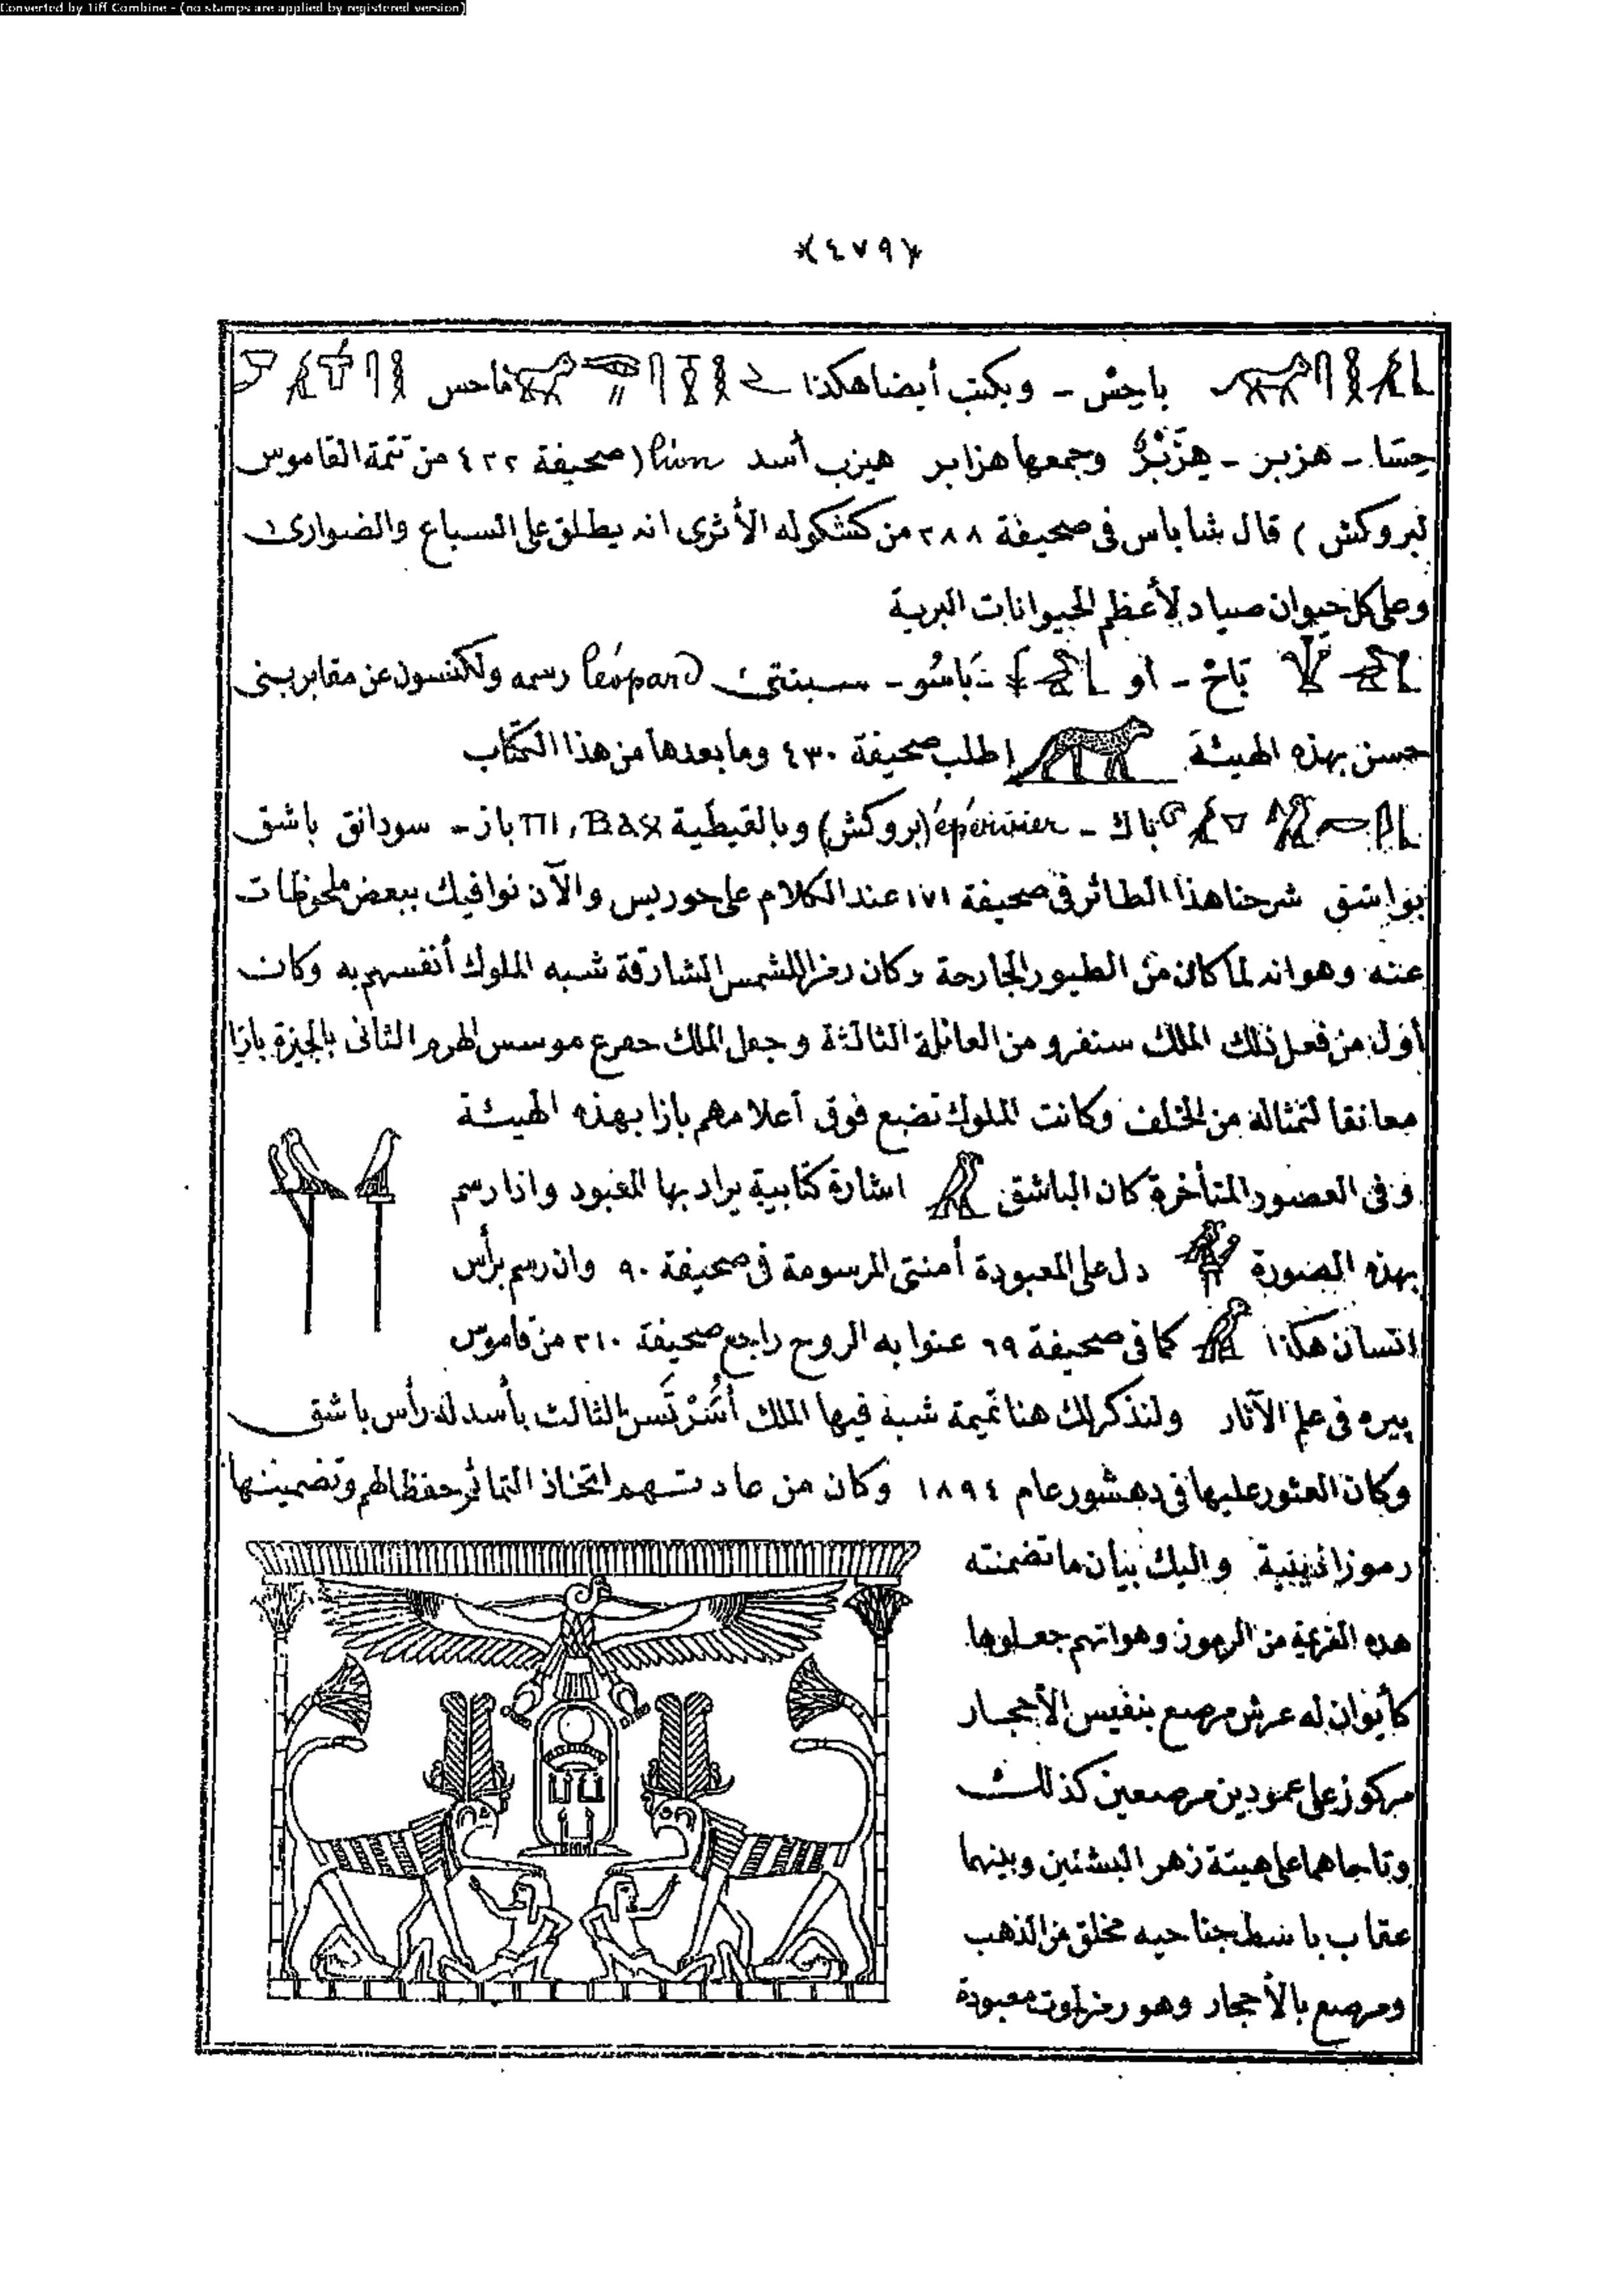 Converted by Tiff Combine - (no stamps are applied by registered version)
﴿٤٧٩﴾
باحِس - ويكتب أيضا هكذا ماحس
حِسَا - هزبر - هِزَّبْرٌ وجمعها هزابر هيزب أسد lion (صحيفة ٤٢٢ من تتمة القاموس
لبروكش) قال شاباس فى صحيفة ٢٨٨ من كشكوله الأثرى انه يطلق على السباع والضوارى
وعلى كل حيوان صياد لأعظم الحيوانات البرية
بَاخ - أو بَاسُو - سبنتى léopard رسمه ولكنسون عن مقابر بنى
حسن بهذه الهيئة اطلب صحيفة ٤٣٠ وما بعدها من هذا الكتاب
باك - épérvier (بروكش) وبالقبطية ΠΙ, ΒΑΧ باز - سودانق باشق
بواشق شرحنا هذا الطائر فى صحيفة ١٧١ عند الكلام على حوريس والآن نوافيك ببعض ملحوظات
عنه وهو انه لما كان من الطيور الجارحة وكان رمزا للشمس الشارقة شبه الملوك أنفسهم به وكان
أول من فعل ذلك الملك سنفرو من العائلة الثالثة وجعل الملك خفرع موسس الهرم الثانى بالجيزة بازا
معانقا لتمثاله من الخلف وكانت الملوك تضع فوق أعلامهم بازا بهذه الهيئة
وفى العصور المتأخرة كان الباشق اشارة كتابية يراد بها المعبود واذا رسم
بهذه الصورة دل على المعبودة أمنتى المرسومة فى صحيفة ٩٠ وان رسم برأس
انسان هكذا كما فى صحيفة ٦٩ عنوا به الروح راجع صحيفة ٢١٠ من قاموس
پيره فى علم الآثار ولنذكر لك هنا تميمة شبه فيها الملك أُسَرْتَسن الثالث بأسد له رأس باشق
وكان العثور عليها فى دهشور عام ١٨٩٤ وكان من عادتهم اتخاذ التمائم حفظا لهم وتضمينها
رموزا دينية واليك بيان ما تضمنته
هذه الفريمة من الرموز وهو انهم جعلوها
كأيوان له عرش مرصع بنفيس الأحجار
مركوز على عمودين مرصعين كذلك
وتاجاهما على هيئة زهر البشنين وبينهما
عقاب باسط جناحيه مخلق من الذهب
ومرصع بالأحجار وهو رمز لموت معبودة